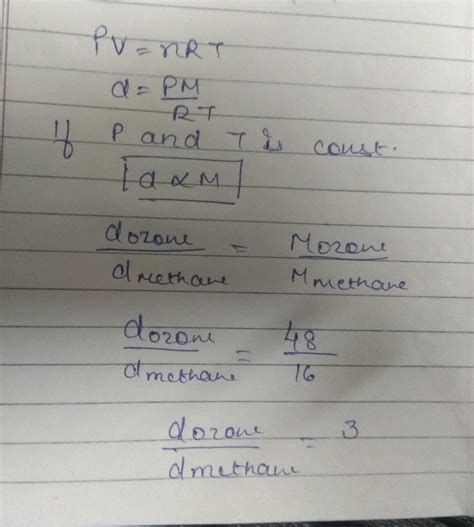 PV = nRT
d = PM/RT
If P and T is const.
d ∝ M
dozone/dmethane = Mozone/Mmethane
dozone/dmethane = 48/16
dozone/dmethane = 3